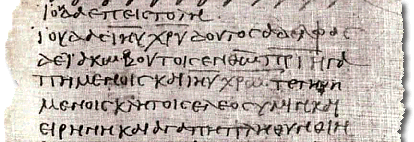 ϊουδα επειστολη
ϊουδας ιηυ χρυ δουλος αδελφος
δε ϊακωβου τοις εν θω πρι ηγα
πημενοις και ιηυ χρω τετηρη
μενοις κλητοις ελεος υμιν και
ειρηνη και αγαπη πληθυνθιη